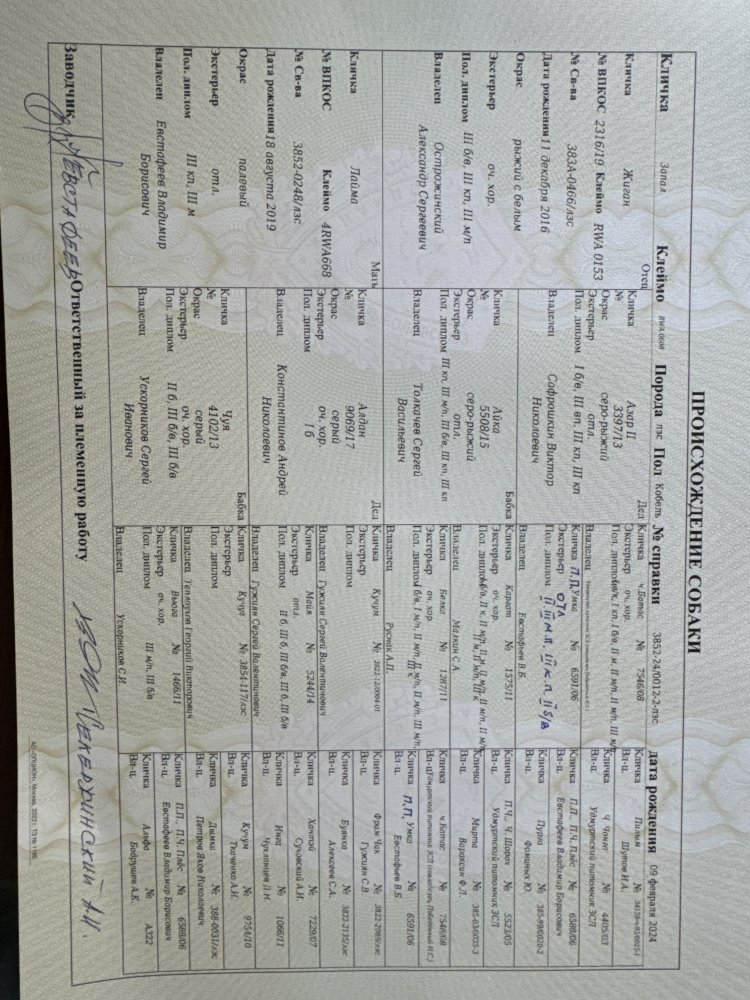 ПРОИСХОЖДЕНИЕ СОБАКИ
Кличка Запал Клеймо RWA 0608 Порода лзс Пол Кобель № справки 3852-24/0012-2-лзс дата рождения 09 февраля 2024
Отец
Кличка Жиган
№ ВПКОС 2316/19 Клеймо RWA 0153
№ Св-ва 383А-0466/лзс
Дата рождения 11 декабря 2016
Окрас рыжий с белым
Экстерьер оч. хор.
Пол. диплом III б/в, III кп, III м/п
Владелец Острожинский
Александр Сергеевич
Мать
Кличка Лайма
№ ВПКОС Клеймо 4RWA668
№ Св-ва 3852-0248/лзс
Дата рождения 18 августа 2019
Окрас палевый
Экстерьер отл.
Пол. диплом III кп, III м
Владелец Евстафеев Владимир
Борисович
Дед
Кличка Азар II
№ 3397/13
Окрас серо-рыжий
Экстерьер отл.
Пол. диплом I б/в, III вп, III кп, III кп
Владелец Сафрошкин Виктор
Николаевич
Бабка
Кличка Айка
№ 5508/15
Окрас серо-рыжий
Экстерьер отл.
Пол. диплом III кп, III м/п, III б/в, III б/в, III кп
Владелец Толкачев Сергей
Васильевич
Дед
Кличка Алдан
№ 9069/17
Окрас серый
Экстерьер оч. хор.
Пол. диплом I б
Владелец Константинов Андрей
Николаевич
Бабка
Кличка Чуя
№ 4102/13
Окрас серый
Экстерьер оч. хор.
Пол. диплом II б, III б/в, III б/в
Владелец Ускорников Сергей
Иванович
Кличка ч.Ботас № 7546/08
Экстерьер оч. хор.
Пол. диплом
Владелец
Кличка П.П. Умка № 6591/06
Экстерьер отл
Пол. диплом II м.п., III м.п. II б/в
Владелец Евстафьев В.Б.
Кличка Карат № 1575/11
Экстерьер оч. хор.
Пол. диплом
Владелец Малкин С.А.
Кличка Белка № 1287/11
Экстерьер оч. хор.
Пол. диплом
Владелец Руснак А.П.
Кличка Кучум № 3822-12/0004-01
Экстерьер
Пол. диплом
Владелец Гужиян Сергей Валентинович
Кличка Майя № 5244/14
Экстерьер отл.
Пол. диплом II б, III б, III б/в, III б, III б/в
Владелец Гужиян Сергей Валентинович
Кличка Кучум № 3854-117/лзс
Экстерьер
Пол. диплом
Владелец Теплоухов Георгий Викторович
Кличка Вьюга № 1466/11
Экстерьер оч. хор.
Пол. диплом III м/п, III б/в
Владелец Ускорников С.И.
Кличка Пыжм №
Вл-ц. Шутов И.А.
Кличка Ч. Чикаг № 4405/03
Вл-ц. Удмуртский питомник ЗСЛ
Кличка П.П., П.Ч. Плёс № 6588/06
Вл-ц. Евстафьев Владимир Борисович
Кличка Пурга № 385-99/0020-2
Вл-ц. Фоминых Ю
Кличка П.Ч., Ч. Шорох № 5523/05
Вл-ц. Удмуртский питомник ЗСЛ
Кличка Мирта № 385-03/0035-3
Вл-ц. Вараксин Ф.Л.
Кличка ч.Ботас № 7546/08
Вл-ц. Удмуртский питомник ЗСЛ
Кличка П.П. Умка № 6591/06
Вл-ц. Евстафьев В.Б.
Кличка Фрам Чик № 3822-2069/лзс
Вл-ц. Гужиян С.В.
Кличка Буянка № 3822-2135/лзс
Вл-ц. Алексеев С.А.
Кличка Хантай № 7229/07
Вл-ц. Суховский А.И.
Кличка Инга № 1066/11
Вл-ц. Чухланцев Д.Н.
Кличка Кучум № 9754/10
Вл-ц. Ткаченко А.Н.
Кличка Дымка № 388-0031/лзс
Вл-ц. Петров Яков Николаевич
Кличка П.П., П.Ч. Плёс № 6588/06
Вл-ц. Евстафьев Владимир Борисович
Кличка Альфа № А322
Вл-ц. Бодрушев А.К.
Заводчик ЕВСТАФЕЕВ Ответственный за племенную работу
АО «ОПЦИОН», Москва, 2022 г.